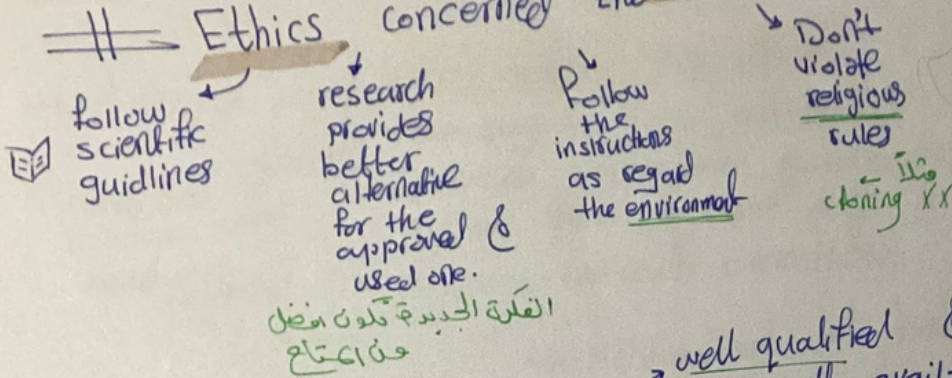 Ethics concerned
follow
scientific
guidlines
research
provides
better
alternative
for the
approved &
used one.
الفكرة الجديدة تكون افضل
من
Follow
the
instructions
as regard
the environment
Don't
violate
religious
rules
مثلاً ←
cloning XX
well qualified